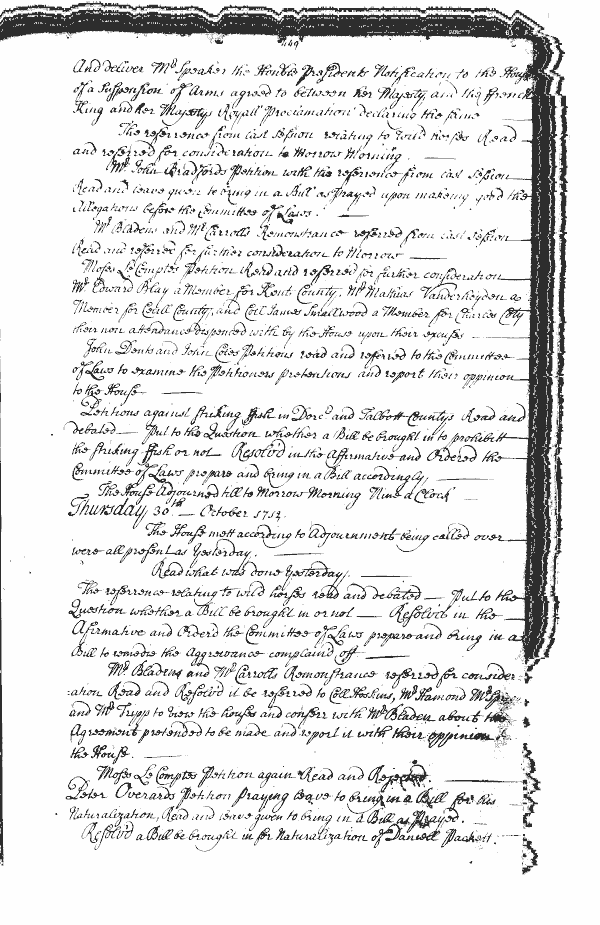 449
And deliver Mr Speaker the Honble Presidents Notification to the House
of a Suspension of Arms agreed to between her Majesty and the French
King and her Majestys Royall Proclamation declaring the same
The referrence from last session relating to wild horses Read
and referred for consideration to Morrow Morning
Mr John Bradfords Petition with his reference from last Session
Read and leave given to bring in a Bill as prayed upon makeing good the
Allegations before the Committee of Laws.
Mr Bladens and Mr Carrolls Remonstrance referred from last session
Read and referred for further consideration to Morrow
Moses Le Comptes Petition Read and referred for further consideration
Mr Edward Blay a Member for Kent County, Mr Mathias Vanderheyden a
Member for Cecill County, and Coll James Smallwood a Member for Charles Coty
their non attendance dispenced with by the House upon their excuses
John Dents and John Coles Petitions read and referred to the Committee
of Laws to examine the Petitioners pretensions and report their oppinion
to the House
Petitions against striking ffish in Dorc. and Talbott Countys Read and
debated Put to the Question whether a Bill be brought in to prohibitt
the striking ffish or not Resolv'd in the Affirmative and Ordered the
Committee of Laws prepare and bring in a Bill accordingly,
The House Adjourned till to Morrow Morning Nine a Clock
Thursday 30th October 1712.
The House mett according to Adjournment being called over
were all present as Yesterday.
Read what was done Yesterday.
The referrence relating to wild horses read and debated Put to the
Question whether a Bill be brought in or not Resolved in the
Afirmative and Order'd the Committee of Laws prepare and bring in a
Bill to remedie the Aggreivance complaind off
Mr Bladens and Mr Carrolls Remonstrance referred for consider-
ation Read and Resolv'd it be referred to Coll Hoskins, Mr Hamond
and Mr Tripp to view the houses and conferr with Mr Bladen about the
Agreement pretended to be made and report it with their oppinion to
the House.
Moses Le Comptes Petition again Read and Rejected.
Peter Overards Petition praying leave to bring in a Bill for his
Naturalization, Read and leave given to bring in a Bill as Prayed.
Resolv'd a Bill be brought in for Naturalization of Daniell Packett.